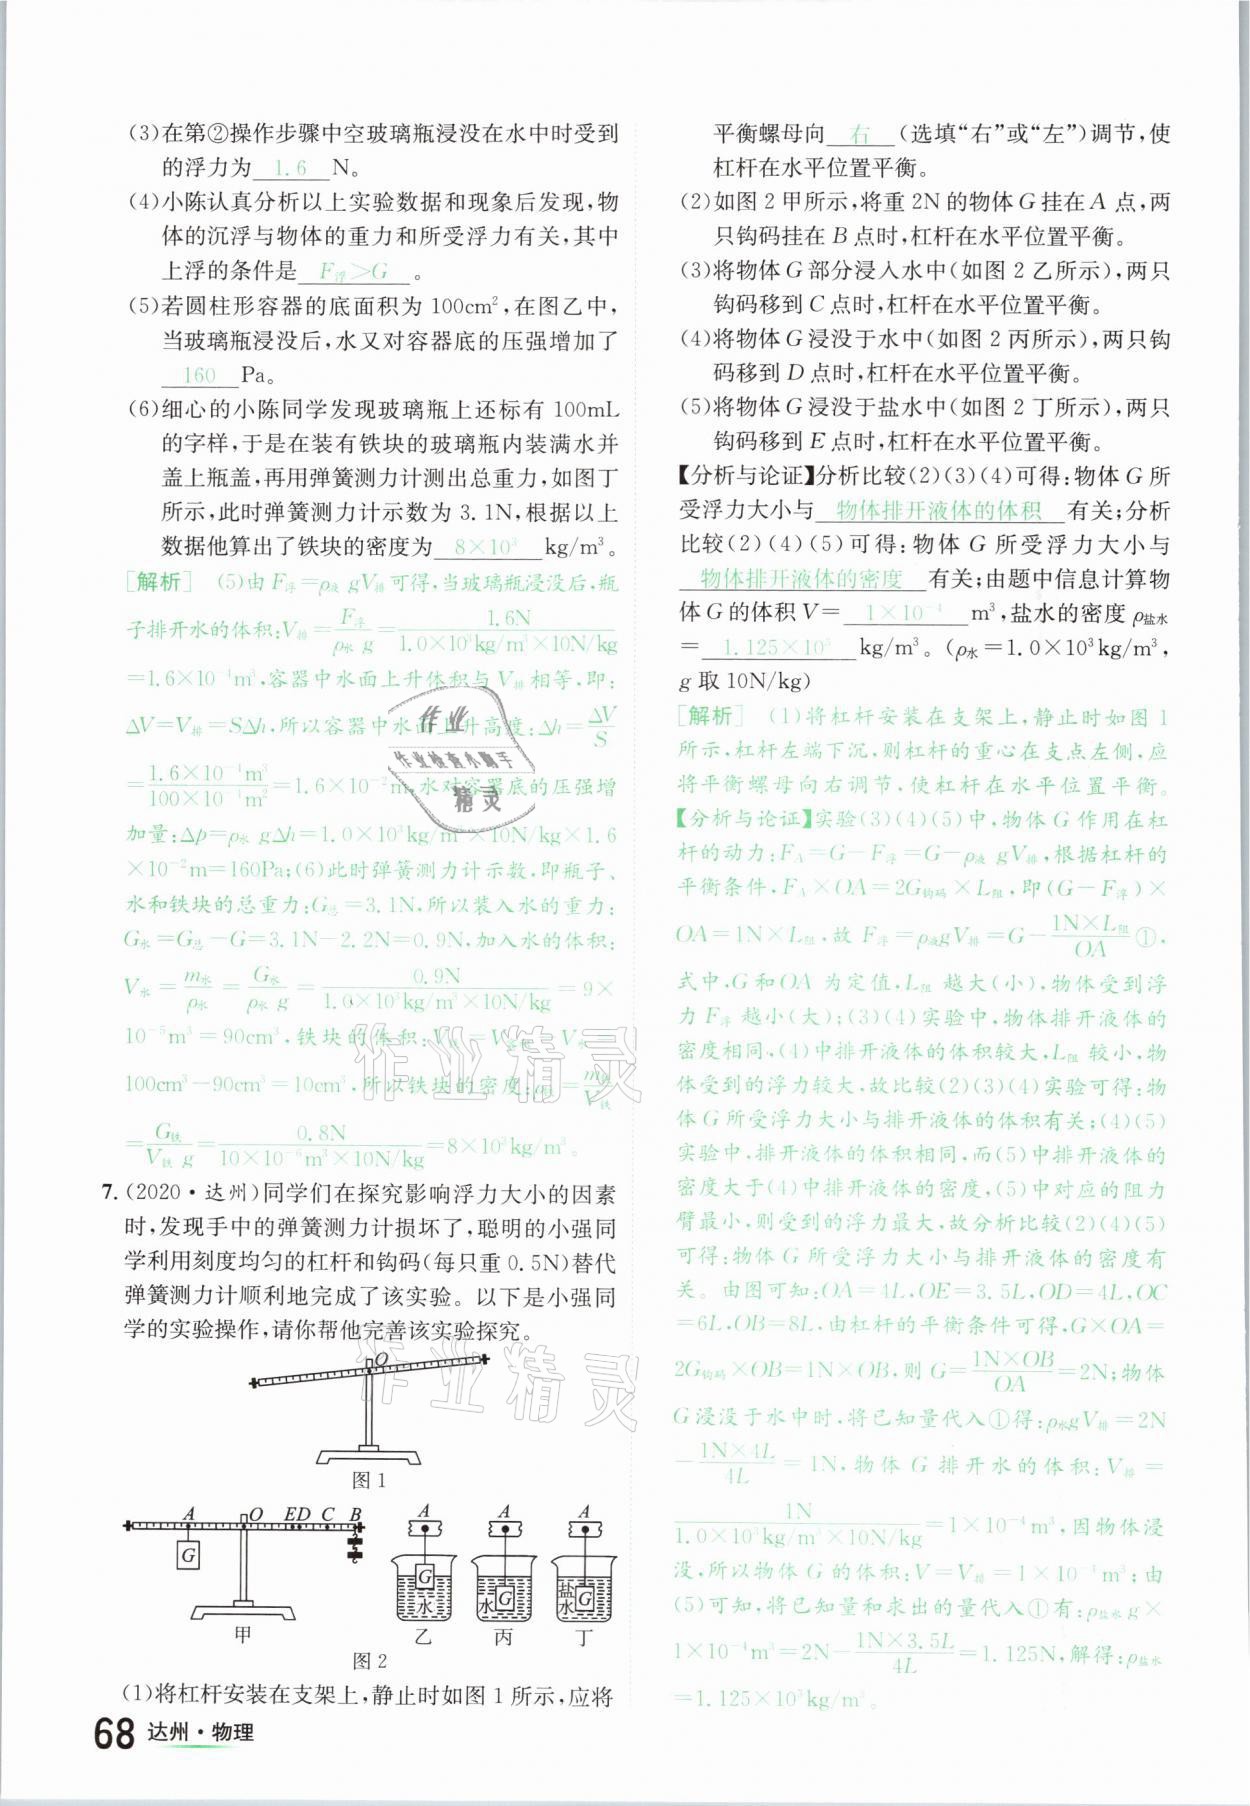 (3)在第②操作步骤中空玻璃瓶浸没在水中时受到
的浮力为 1.6 N。
(4)小陈认真分析以上实验数据和现象后发现,物
体的沉浮与物体的重力和所受浮力有关,其中
上浮的条件是 F浮>G 。
(5)若圆柱形容器的底面积为 100cm²,在图乙中,
当玻璃瓶浸没后,水又对容器底的压强增加了
160 Pa。
(6)细心的小陈同学发现玻璃瓶上还标有 100mL
的字样,于是在装有铁块的玻璃瓶内装满水并
盖上瓶盖,再用弹簧测力计测出总重力,如图丁
所示,此时弹簧测力计示数为 3.1N,根据以上
数据他算出了铁块的密度为 8×10³ kg/m³。
[解析] (5)由 F浮=ρ液 gV排可得,当玻璃瓶浸没后,瓶
子排开水的体积:V排=F浮/ρ水 g=1.6N/1.0×10³kg/m³×10N/kg
=1.6×10⁻⁴m³,容器中水面上升体积与 V排相等,即:
ΔV=V排=SΔh,所以容器中水面上升高度:Δh=ΔV/S
=1.6×10⁻⁴m³/100×10⁻⁴m²=1.6×10⁻²m,水对容器底的压强增
加量:Δp=ρ水 gΔh=1.0×10³kg/m³×10N/kg×1.6
×10⁻²m=160Pa;(6)此时弹簧测力计示数,即瓶子、
水和铁块的总重力:G总=3.1N,所以装入水的重力:
G水=G总-G=3.1N-2.2N=0.9N,加入水的体积:
V水=m水/ρ水=G水/ρ水 g=0.9N/1.0×10³kg/m³×10N/kg=9×
10⁻⁵m³=90cm³,铁块的体积:V铁=V容-V水=
100cm³-90cm³=10cm³,所以铁块的密度:ρ铁=m铁/V铁
=G铁/V铁 g=0.8N/10×10⁻⁶m³×10N/kg=8×10³kg/m³。
7. (2020·达州)同学们在探究影响浮力大小的因素
时,发现手中的弹簧测力计损坏了,聪明的小强同
学利用刻度均匀的杠杆和钩码(每只重 0.5N)替代
弹簧测力计顺利地完成了该实验。以下是小强同
学的实验操作,请你帮他完善该实验探究。
O
图 1
A O ED C B
G
甲
A
G
水
乙
A
水 G
丙
A
盐水 G
丁
图 2
(1)将杠杆安装在支架上,静止时如图 1 所示,应将
68 达州·物理
平衡螺母向 右 (选填“右”或“左”)调节,使
杠杆在水平位置平衡。
(2)如图 2 甲所示,将重 2N 的物体 G 挂在 A 点,两
只钩码挂在 B 点时,杠杆在水平位置平衡。
(3)将物体 G 部分浸入水中(如图 2 乙所示),两只
钩码移到 C 点时,杠杆在水平位置平衡。
(4)将物体 G 浸没于水中(如图 2 丙所示),两只钩
码移到 D 点时,杠杆在水平位置平衡。
(5)将物体 G 浸没于盐水中(如图 2 丁所示),两只
钩码移到 E 点时,杠杆在水平位置平衡。
【分析与论证】分析比较(2)(3)(4)可得:物体 G 所
受浮力大小与 物体排开液体的体积 有关;分析
比较(2)(4)(5)可得:物体 G 所受浮力大小与
物体排开液体的密度 有关;由题中信息计算物
体 G 的体积 V= 1×10⁻⁴ m³,盐水的密度 ρ盐水
= 1.125×10³ kg/m³。(ρ水=1.0×10³kg/m³,
g 取 10N/kg)
[解析] (1)将杠杆安装在支架上,静止时如图 1
所示,杠杆左端下沉,则杠杆的重心在支点左侧,应
将平衡螺母向右调节,使杠杆在水平位置平衡。
【分析与论证】实验(3)(4)(5)中,物体 G 作用在杠
杆的动力:FA=G-F浮=G-ρ液 gV排,根据杠杆的
平衡条件,FA×OA=2G钩码×L阻,即(G-F浮)×
OA=1N×L阻,故 F浮=ρ液gV排=G-1N×L阻/OA①,
式中,G 和 OA 为定值,L阻 越大(小),物体受到浮
力 F浮 越小(大);(3)(4)实验中,物体排开液体的
密度相同,(4)中排开液体的体积较大,L阻 较小,物
体受到的浮力较大,故比较(2)(3)(4)实验可得:物
体 G 所受浮力大小与排开液体的体积有关;(4)(5)
实验中,排开液体的体积相同,而(5)中排开液体的
密度大于(4)中排开液体的密度,(5)中对应的阻力
臂最小,则受到的浮力最大,故分析比较(2)(4)(5)
可得:物体 G 所受浮力大小与排开液体的密度有
关。由图可知:OA=4L,OE=3.5L,OD=4L,OC
=6L,OB=8L,由杠杆的平衡条件可得,G×OA=
2G钩码×OB=1N×OB,则 G=1N×OB/OA=2N;物体
G 浸没于水中时,将已知量代入①得:ρ水gV排=2N
-1N×4L/4L=1N,物体 G 排开水的体积:V排=
1N/1.0×10³kg/m³×10N/kg=1×10⁻⁴m³,因物体浸
没,所以物体 G 的体积:V=V排=1×10⁻⁴m³;由
(5)可知,将已知量和求出的量代入①有:ρ盐水 g×
1×10⁻⁴m³=2N-1N×3.5L/4L=1.125N,解得:ρ盐水
=1.125×10³kg/m³。
作业
作业检查小助手
精灵
作业精灵
作业精灵